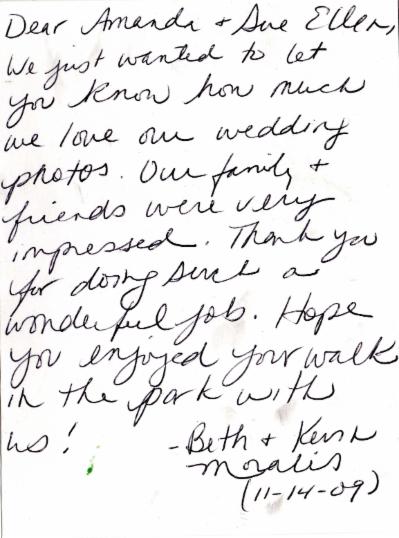 Dear Amanda + Sue Ellen,
We just wanted to let
you know how much
we love our wedding
photos. Our family +
friends were very
impressed. Thank you
for doing such a
wonderful job. Hope
you enjoyed your walk
in the park with
us!
-Beth + Kevin
Moralis
(11-14-09)